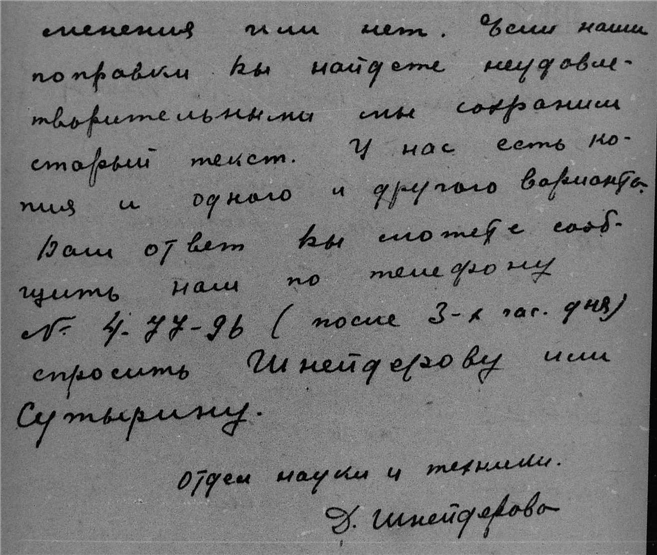 менения или нет. Если наши
поправки вы найдете неудовле-
творительными мы сохраним
старый текст. У нас есть ко-
пия и одного и другого варианта.
Ваш ответ вы можете сооб-
щить нам по телефону
№ 4-77-96 (после 3-х час. дня)
спросить Шнейдерову или
Сутырину.
Отдел науки и техники.
Д. Шнейдерова